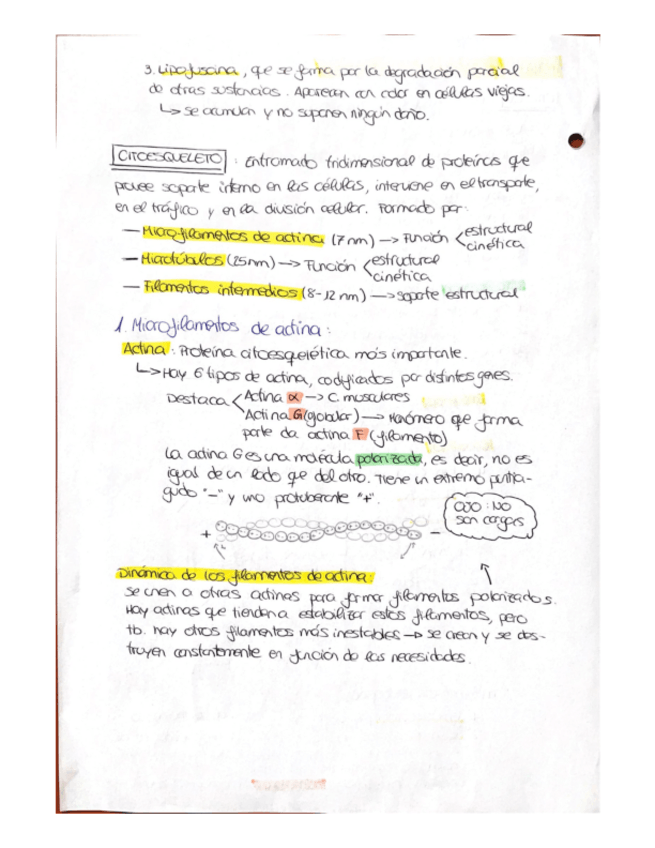 3. Lipofuscina, que se forma por la degradación parcial
de otras sustancias. Aparecen con color en células viejas.
↳ se acumulan y no suponen ningún daño.
CITOESQUELETO : Entramado tridimensional de proteínas que
provee soporte interno en las células, interviene en el transporte,
en el tráfico y en la división celular. Formado por:
— Microfilamentos de actina (7nm) → Función < estructural
cinética
— Microtúbulos (25nm) → Función < estructural
cinética
— Filamentos intermedios (8-12 nm) → soporte estructural
1. Microfilamentos de actina:
Actina : Proteína citoesquelética más importante.
↳ Hay 6 tipos de actina, codificados por distintos genes.
Destaca < Actina α → C. musculares
Actina G (globular) → Monómero que forma
parte da actina F (filamento)
La actina G es una molécula polarizada, es decir, no es
igual de un lado que del otro. Tiene un extremo puntia-
gudo "-" y uno protuberante "+".
OJO: NO
son cargas
+ −
Dinámica de los filamentos de actina:
Se unen a otras actinas para formar filamentos polarizados.
Hay actinas que tienden a estabilizar estos filamentos, pero
tb. hay otros filamentos más inestables → se crean y se des-
truyen constantemente en función de las necesidades.